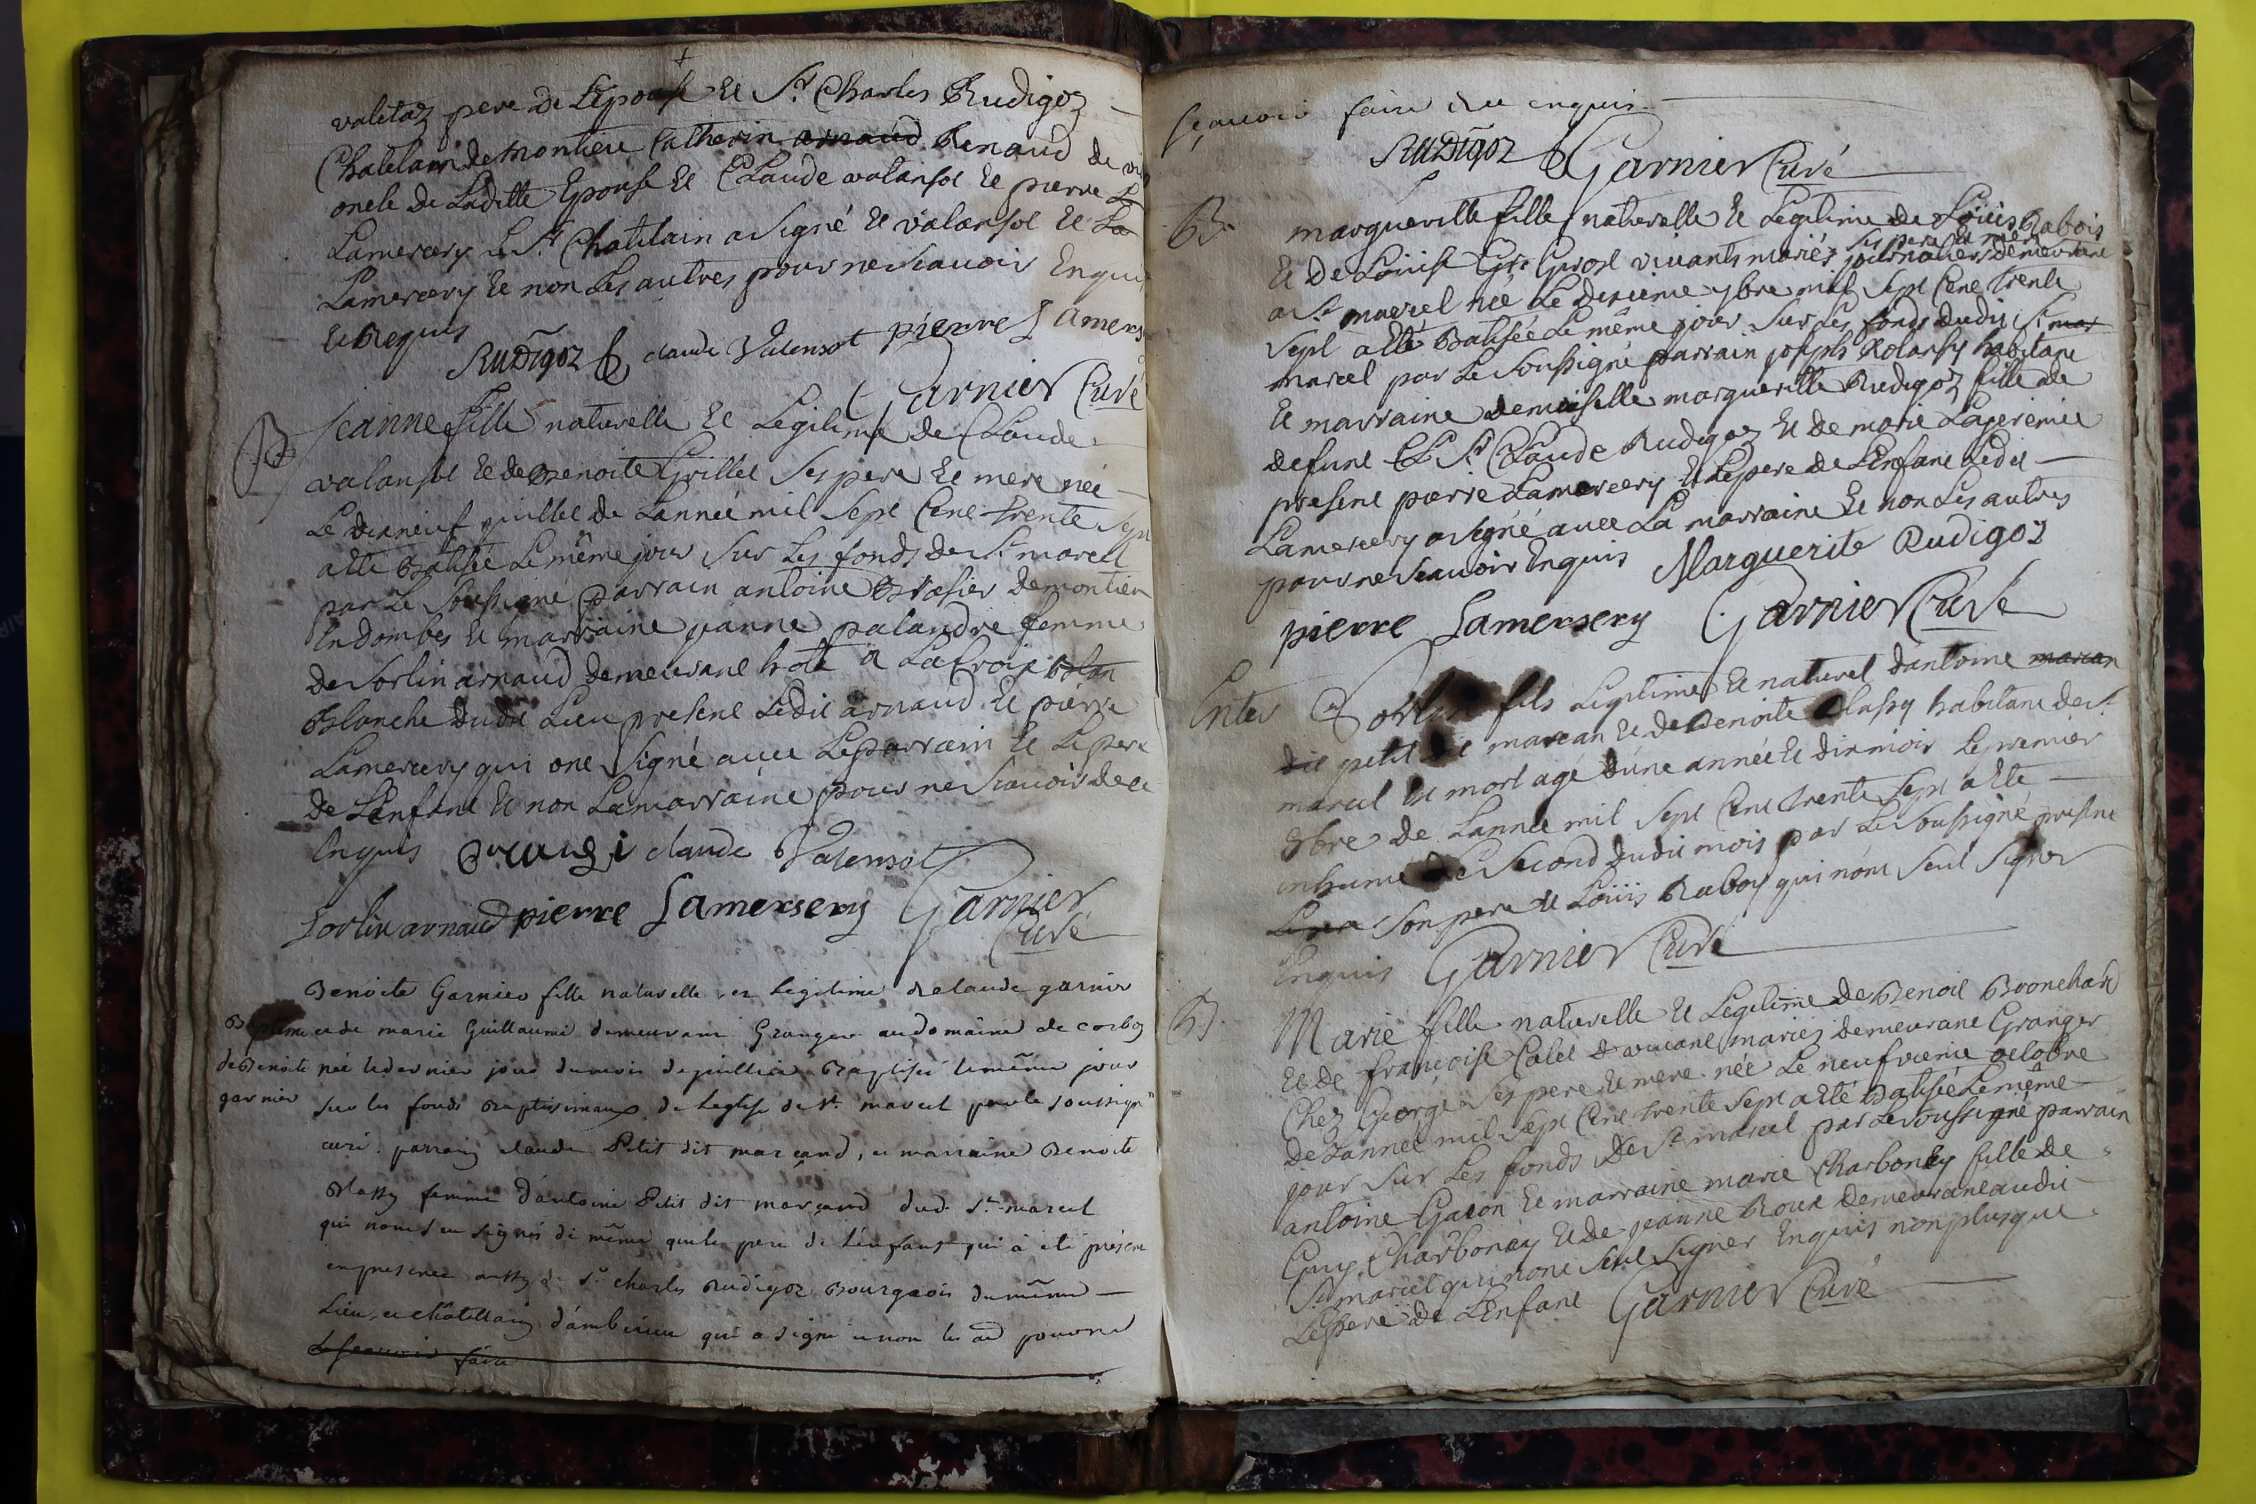 valetaz pere de L'epouse Et Sr Charles Rudigoz
Chatelain de montieu Catherin arnaud Renaud de
oncle de Laditte Epouse Et Claude valansot Et pierre La
Lamercery Le Sr Chatelain a signé Et valansot Et La
Lamercery Et non Les autres pour ne scauoir Enquis
Et Requis
RuDigoz claude Valensot pierre Lamers
Garnier Curé
B
Jeanne fille naturelle Et Legitime de Claude
valansot Et de Benoite Grillet Ses pere Et mere née
Le dixneuf juillet de Lannée mil Sept Cent trente Sept
a été Batisée Le même jour Sur Les fonds de St marcel
par Le Soussigné parrain antoine Brasier de montieu
En dombes Et marraine jeanne palandre femme
de Sorlin arnaud demeurant hote a La Croix Blan
Blanche dudit Lieu present Ledit arnaud Et pierre
Lamercery qui ont Signé auec Le parrain Et Le pere
de L'Enfant Et non La marraine pour ne Scauoir de ce
Enquis claude Valensot
Sorlin arnaud pierre Lamersery Garnier
Curé
Benoite Garnier fille naturelle et legitime de claude garnier
Baptême et de marie Guillaume demeurant Granger au domaine de corboz
de Benoite née le dernier jour du mois de juillet Baptisée le même jour
garnier sur les fonds Baptismaux de l'eglise de St marcel par le soussigné
curé. parrain claude Petit dit marcand, et marraine Benoite
Blassy femme d'antoine Petit dit marcand dud. St marcel
qui nont sceu signer de même que le pere de l'enfant qui à eté présent
en presence aussy de Sr charles Rudigoz Bourgeois du même
Lieu, et châtellain d'amberieu qui a signé et non les aud pour ne
le scauoir faire
sçauoir faire de ce enquis
RuDigoz Garnier Curé
B.
marguerite fille naturelle Et Legitime de Loüis Rabois
Et de Loüise Gyr Gyrost viuants mariés ses pere et mere journaliers demeurant
a St marcel née Le dixieme 7bre mil Sept Cent trente
Sept a été Batisée Le même jour Sur Les fonds dudit St mar
marcel par Le Soussigné parrain joseph Rolanfy habitant
Et marraine demoiselle marguerite Rudigoz fille de
defunt Sr Claude Rudigoz Et de marie Laperemie
present pierre Lamercery Et Le pere de L'Enfant Ledit
Lamercery a signé auec La marraine Et non Les autres
pour ne Scauoir Enquis Marguerite Rudigoz
pierre Lamersery Garnier Curé
Enter
Sorlin fils Legitime Et naturel d'antoine marcan
dit petit dit marcan Et de Benoite Blassy habitant de St
marcel Est mort agé d'une année Et dix mois Le premier
8bre de Lannée mil Sept Cent trente Sept a Eté
inhumé Le Second dudit mois par Le Soussigné present
Son pere Et Loüis Raboy qui n'ont Seut Signer
Enquis Garnier Curé
B.
Marie fille naturelle Et Legitime de Benoit Bronchard
Et de françoise Calet viuant mariez demeurant Granger
Chez George Ses pere Et mere née Le neufvieme octobre
de Lannée mil Sept Cent trente Sept a Eté Batisée Le même
jour Sur Les fonds De St marcel par Le Soussigné parrain
antoine Gacon Et marraine marie Charbonay fille de
Guy Charbonay Et de jeanne Roux demeurant audit
St marcel qui n'ont Seut Signer Enquis non plus que
Le pere de L'Enfant Garnier Curé